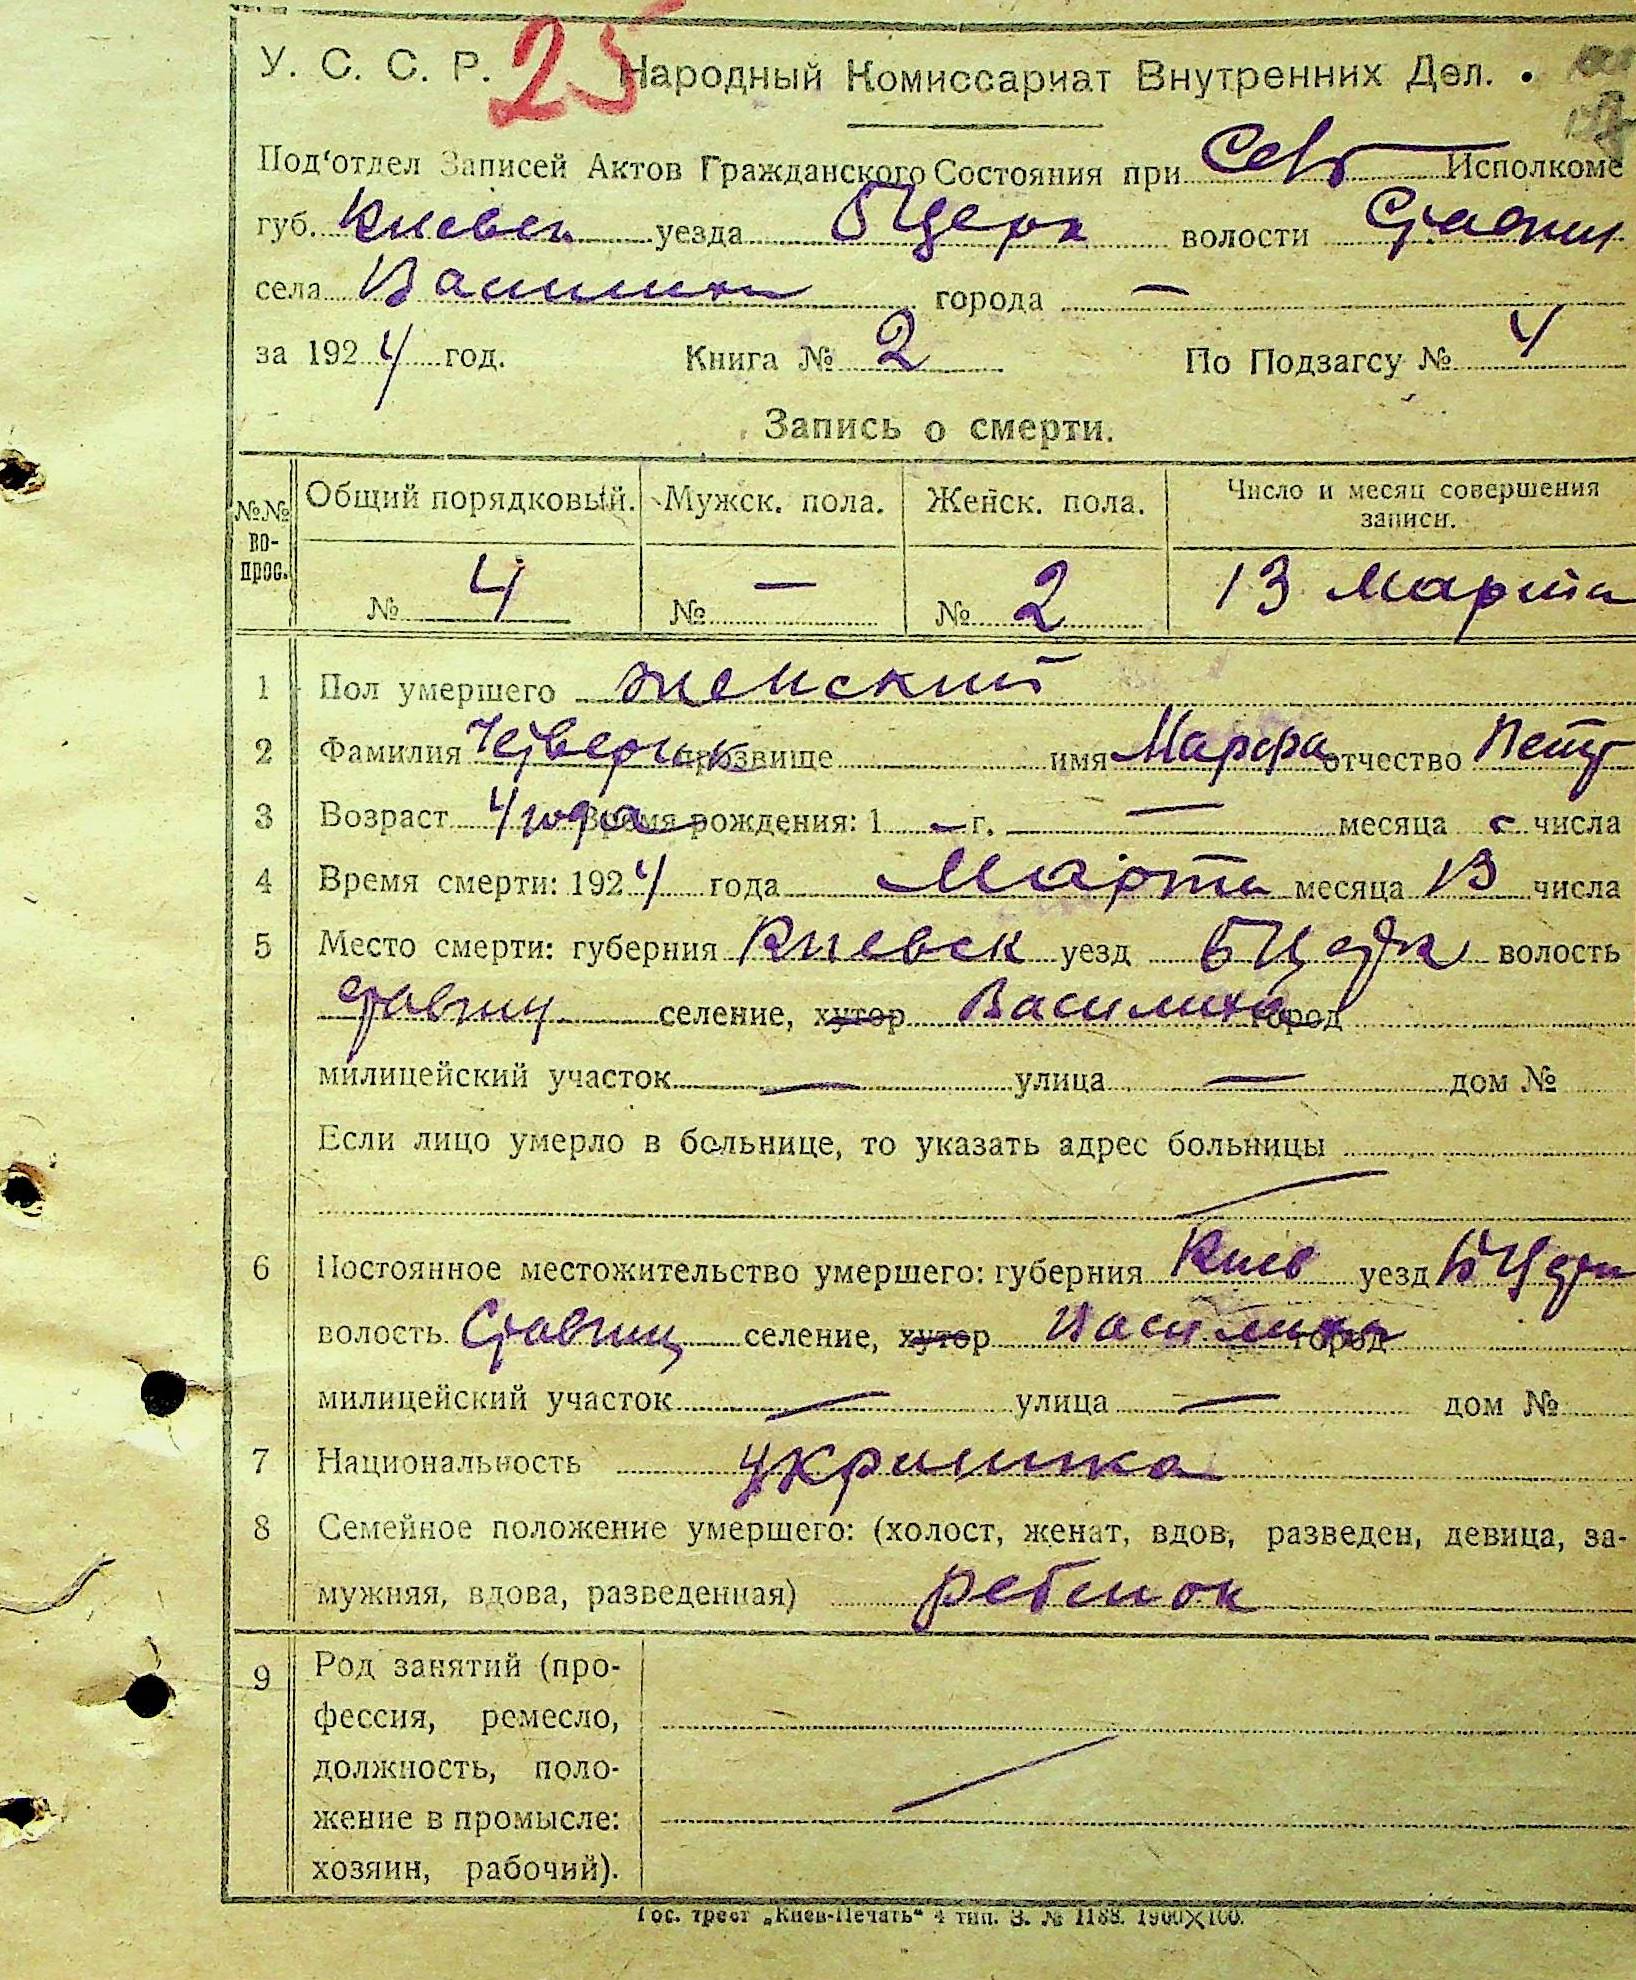 У. С. С. Р. 25 Народный Комиссариат Внутренних Дел.
Под'отдел Записей Актов Гражданского Состояния при Исполкоме
губ. Киевск уезда БЦерк волости Ставищ
села Василиха города —
за 1924 год. Книга № 2 По Подзагсу № 4
Запись о смерти.
№№ во-прос. Общий порядковый. Мужск. пола. Женск. пола. Число и месяц совершения записи.
№ 4 № — № 2 13 Марта
1 Пол умершего женский
2 Фамилия Четверик прозвище имя Марфа отчество Петр
3 Возраст 4 года Время рождения: 1 — г. — месяца числа
4 Время смерти: 1924 года Марта месяца 13 числа
5 Место смерти: губерния Киевск уезд БЦерк волость
Ставищ селение, хутор Василиха город
милицейский участок — улица — дом №
Если лицо умерло в больнице, то указать адрес больницы
—
6 Постоянное местожительство умершего: губерния Киев уезд БЦерк
волость Ставищ селение, хутор Василиха город
милицейский участок — улица — дом №
7 Национальность украинка
8 Семейное положение умершего: (холост, женат, вдов, разведен, девица, за-
мужняя, вдова, разведенная) ребенок
9 Род занятий (про-
фессия, ремесло,
должность, поло- —
жение в промысле:
хозяин, рабочий).
Гос. трест „Киев-Печать“ 4 тип. З. № 1188. 1900×100.